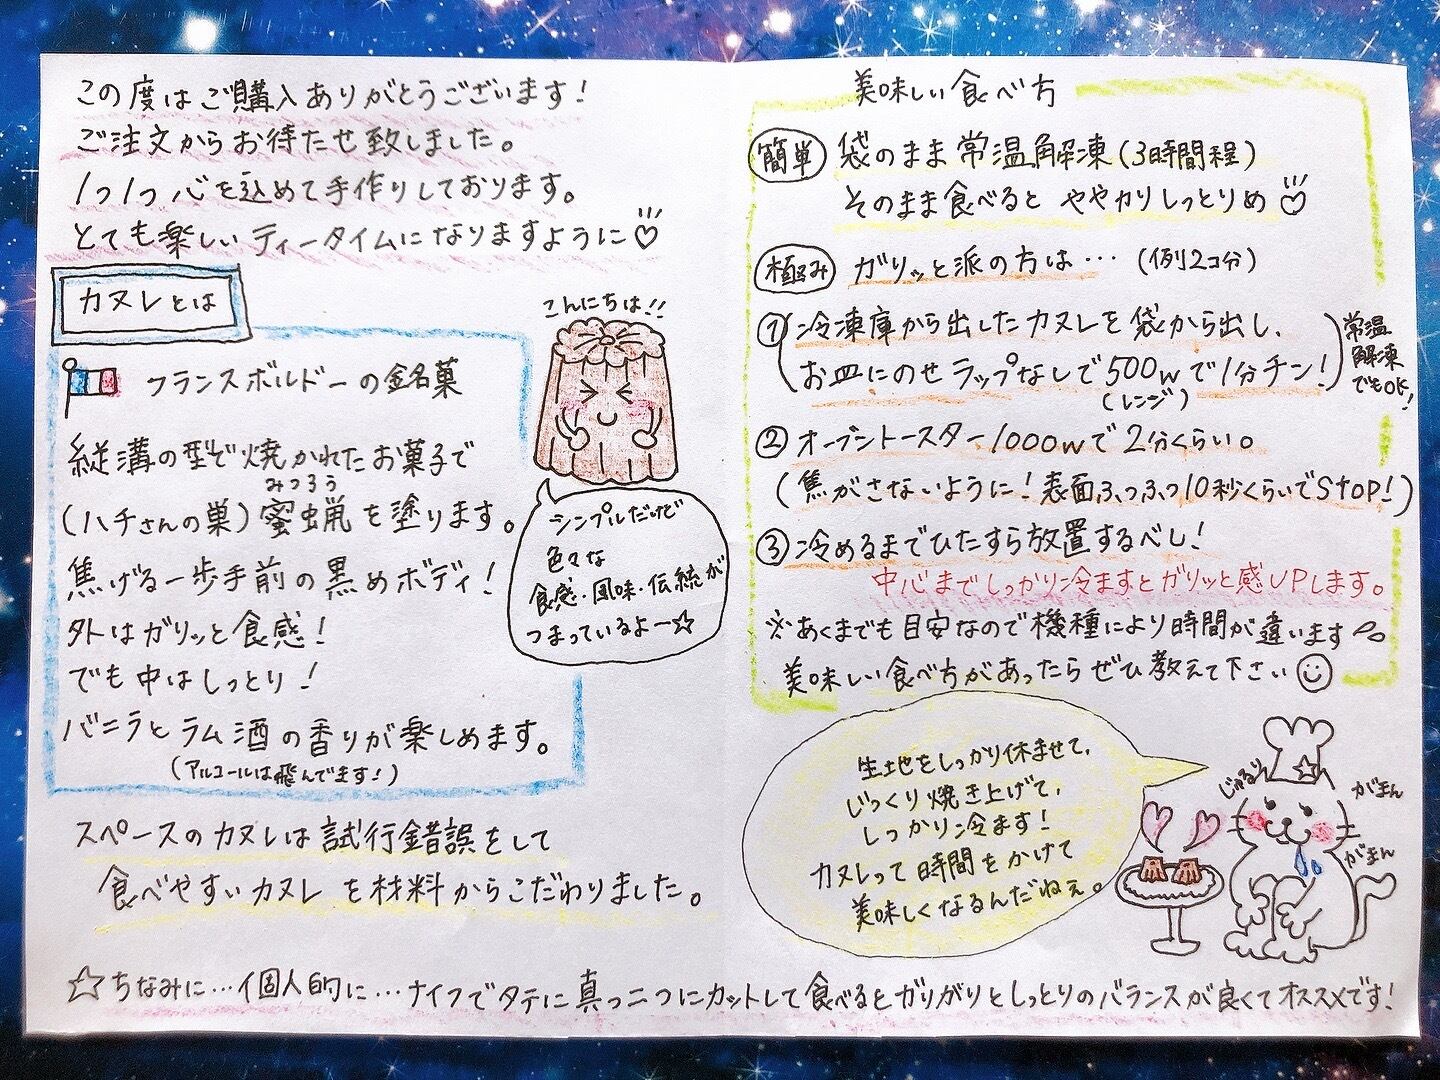 この度はご購入ありがとうございます!
ご注文からお待たせ致しました。
1つ1つ心を込めて手作りしております。
とても楽しいティータイムになりますように♡
カヌレとは
フランスボルドーの銘菓
縦溝の型で焼かれたお菓子で
みつろう
(ハチさんの巣)蜜蝋を塗ります。
焦げる一歩手前の黒めボディ!
外はガリッと食感!
でも中はしっとり!
バニラとラム酒の香りが楽しめます。
(アルコールは飛んでます!)
こんにちは!!
シンプルだけど
色々な
食感・風味・伝統が
つまっているよー☆
スペースのカヌレは試行錯誤をして
食べやすいカヌレを材料からこだわりました。
美味しい食べ方
簡単 袋のまま常温解凍(3時間程)
そのまま食べると ややカリしっとりめ♡
極み ガリッと派の方は…(例2コ分)
① 冷凍庫から出したカヌレを袋から出し、
お皿にのせラップなしで500wで1分チン!
(レンジ)
常温
解凍
でもOK!
② オーブントースター1000wで2分くらい。
(焦がさないように!表面ふつふつ10秒くらいでSTOP!)
③ 冷めるまでひたすら放置するべし!
中心までしっかり冷ますとガリッと感UPします。
※あくまでも目安なので機種により時間が違います
美味しい食べ方があったらぜひ教えて下さい
生地をしっかり休ませて、
じっくり焼き上げて、
しっかり冷ます!
カヌレって時間をかけて
美味しくなるんだねぇ。
じゅるり
がまん
がまん
☆ちなみに…個人的に…ナイフでタテに真っ二つにカットして食べるとガリがりとしっとりのバランスが良くてオススメです!